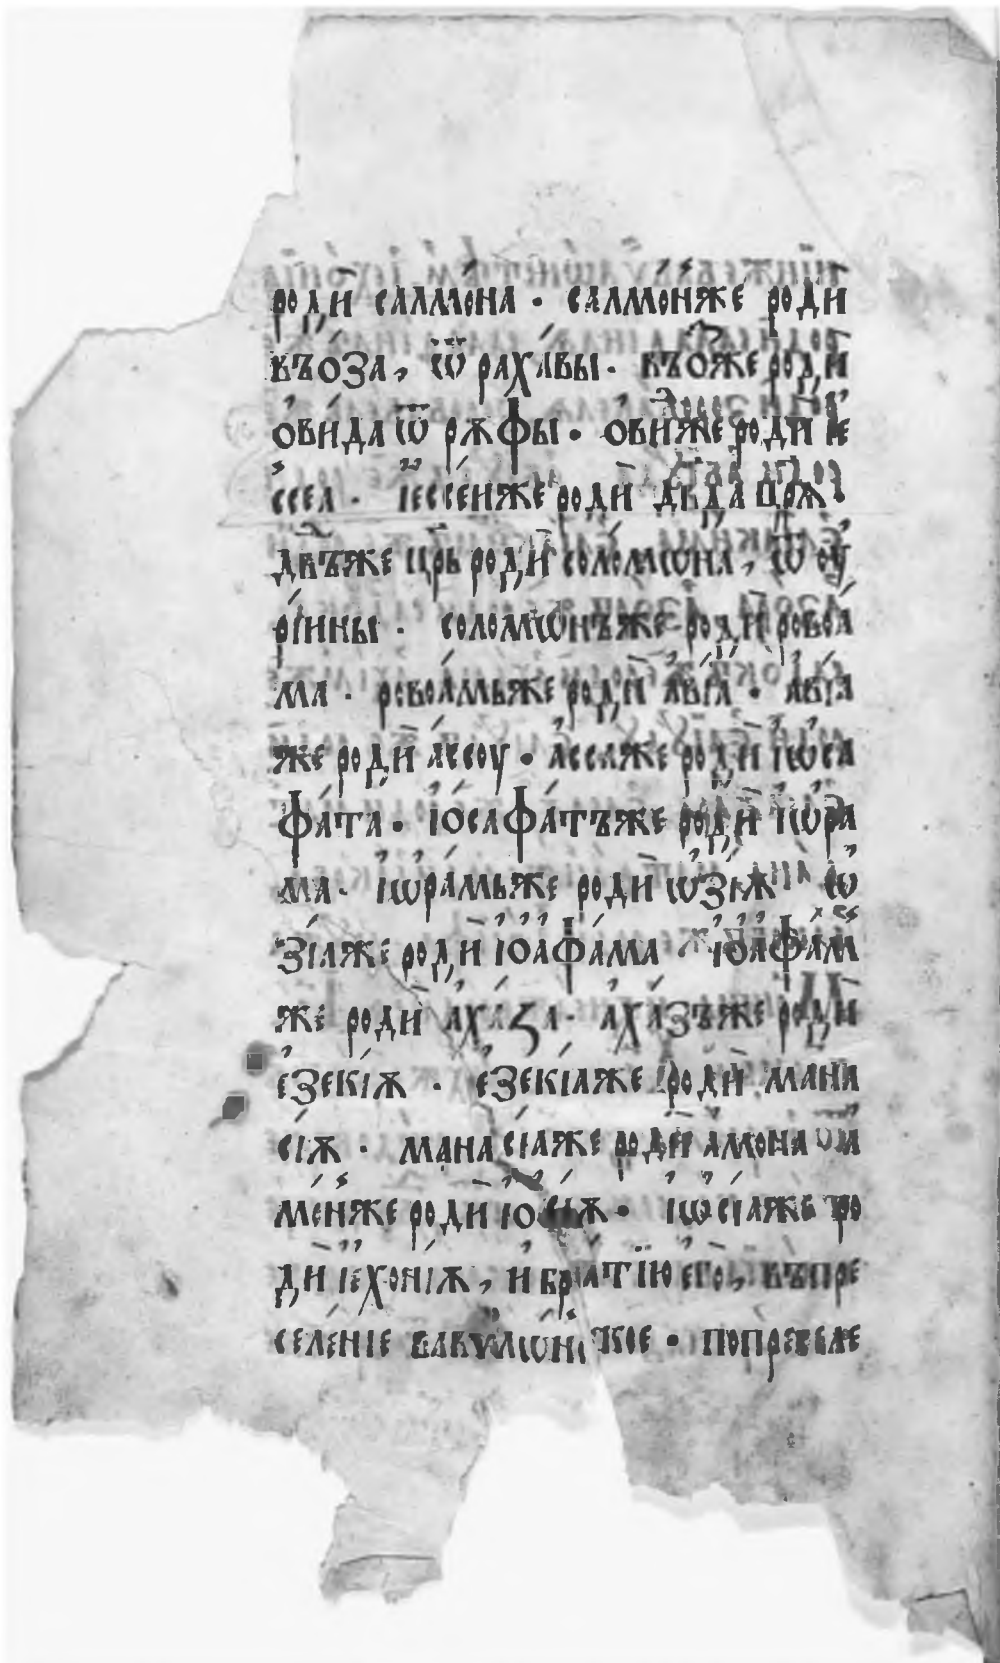 роди салмона · салмонѫже роди
въоза, ѿ рахавы · въоже роди
овида ѿ рѫфы · овиже роди іе
ссеа · іессеиже роди двда црѣ ·
двъже црь роди соломѡна, ѿ оу
рінны · соломѡнъже роди ровоа
ма · ровоамьже роди авіа · авіа
же роди ассоу · ассаже роди іѡса
фата · іосафатъже роди іѡра
ма · іѡрамьже роди ѡзіѫ ѡ
зіаже роди іоафама · іоафам
же роди ахаза · ахазъже роди
езекіѫ · езекіаже роди мана
сіѫ · манасіаже роди амона а
монже роди іосіѫ · іѡсіаже ро
ди іехоніѫ, и братїю его, въпре
селеніе вавѵлѡнское · попреселе